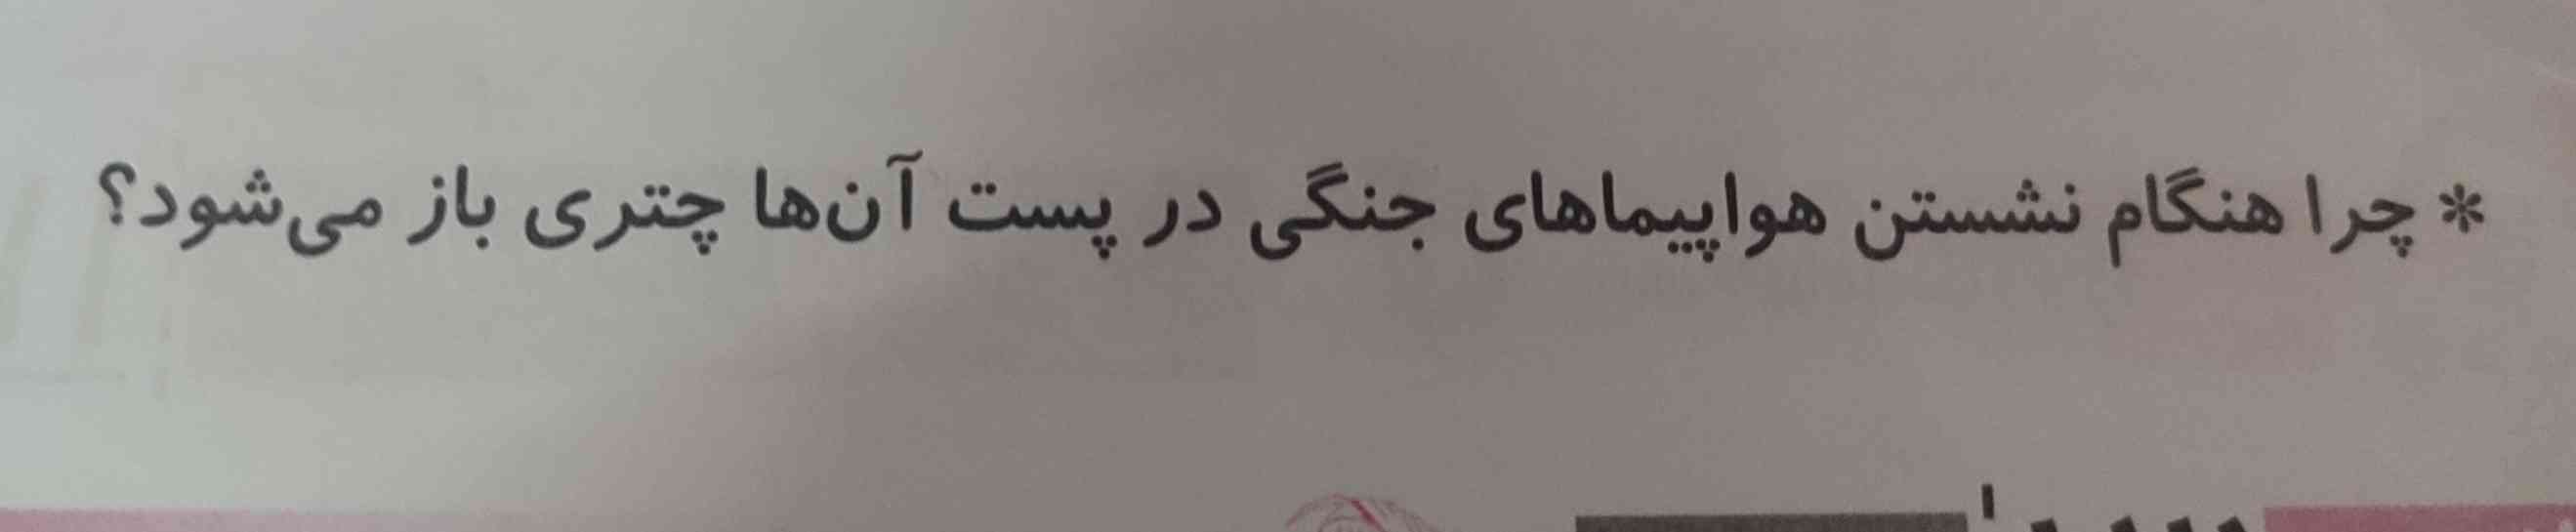 * چرا هنگام نشستن هواپیماهای جنگی در پست آن‌ها چتری باز می‌شود؟